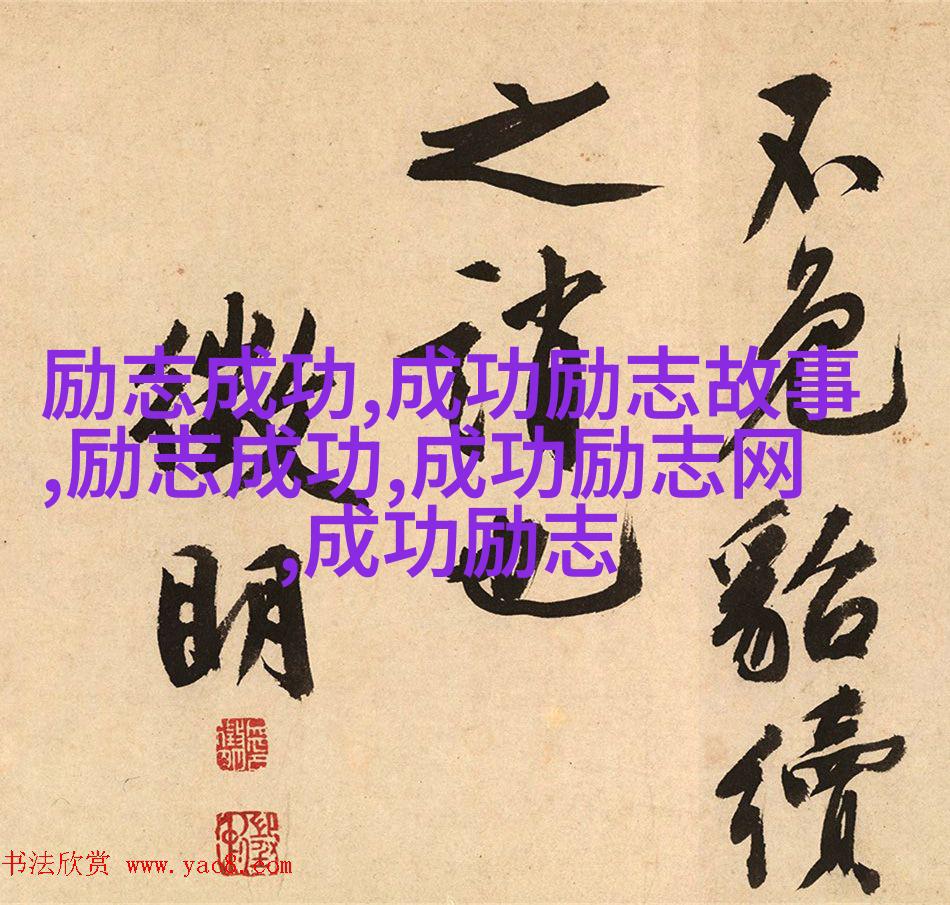 不免貂續
之誚也
徵明
励志成功,成功励志故事
,励志成功,成功励志网
,成功励志
书法欣赏 www.yac8.com